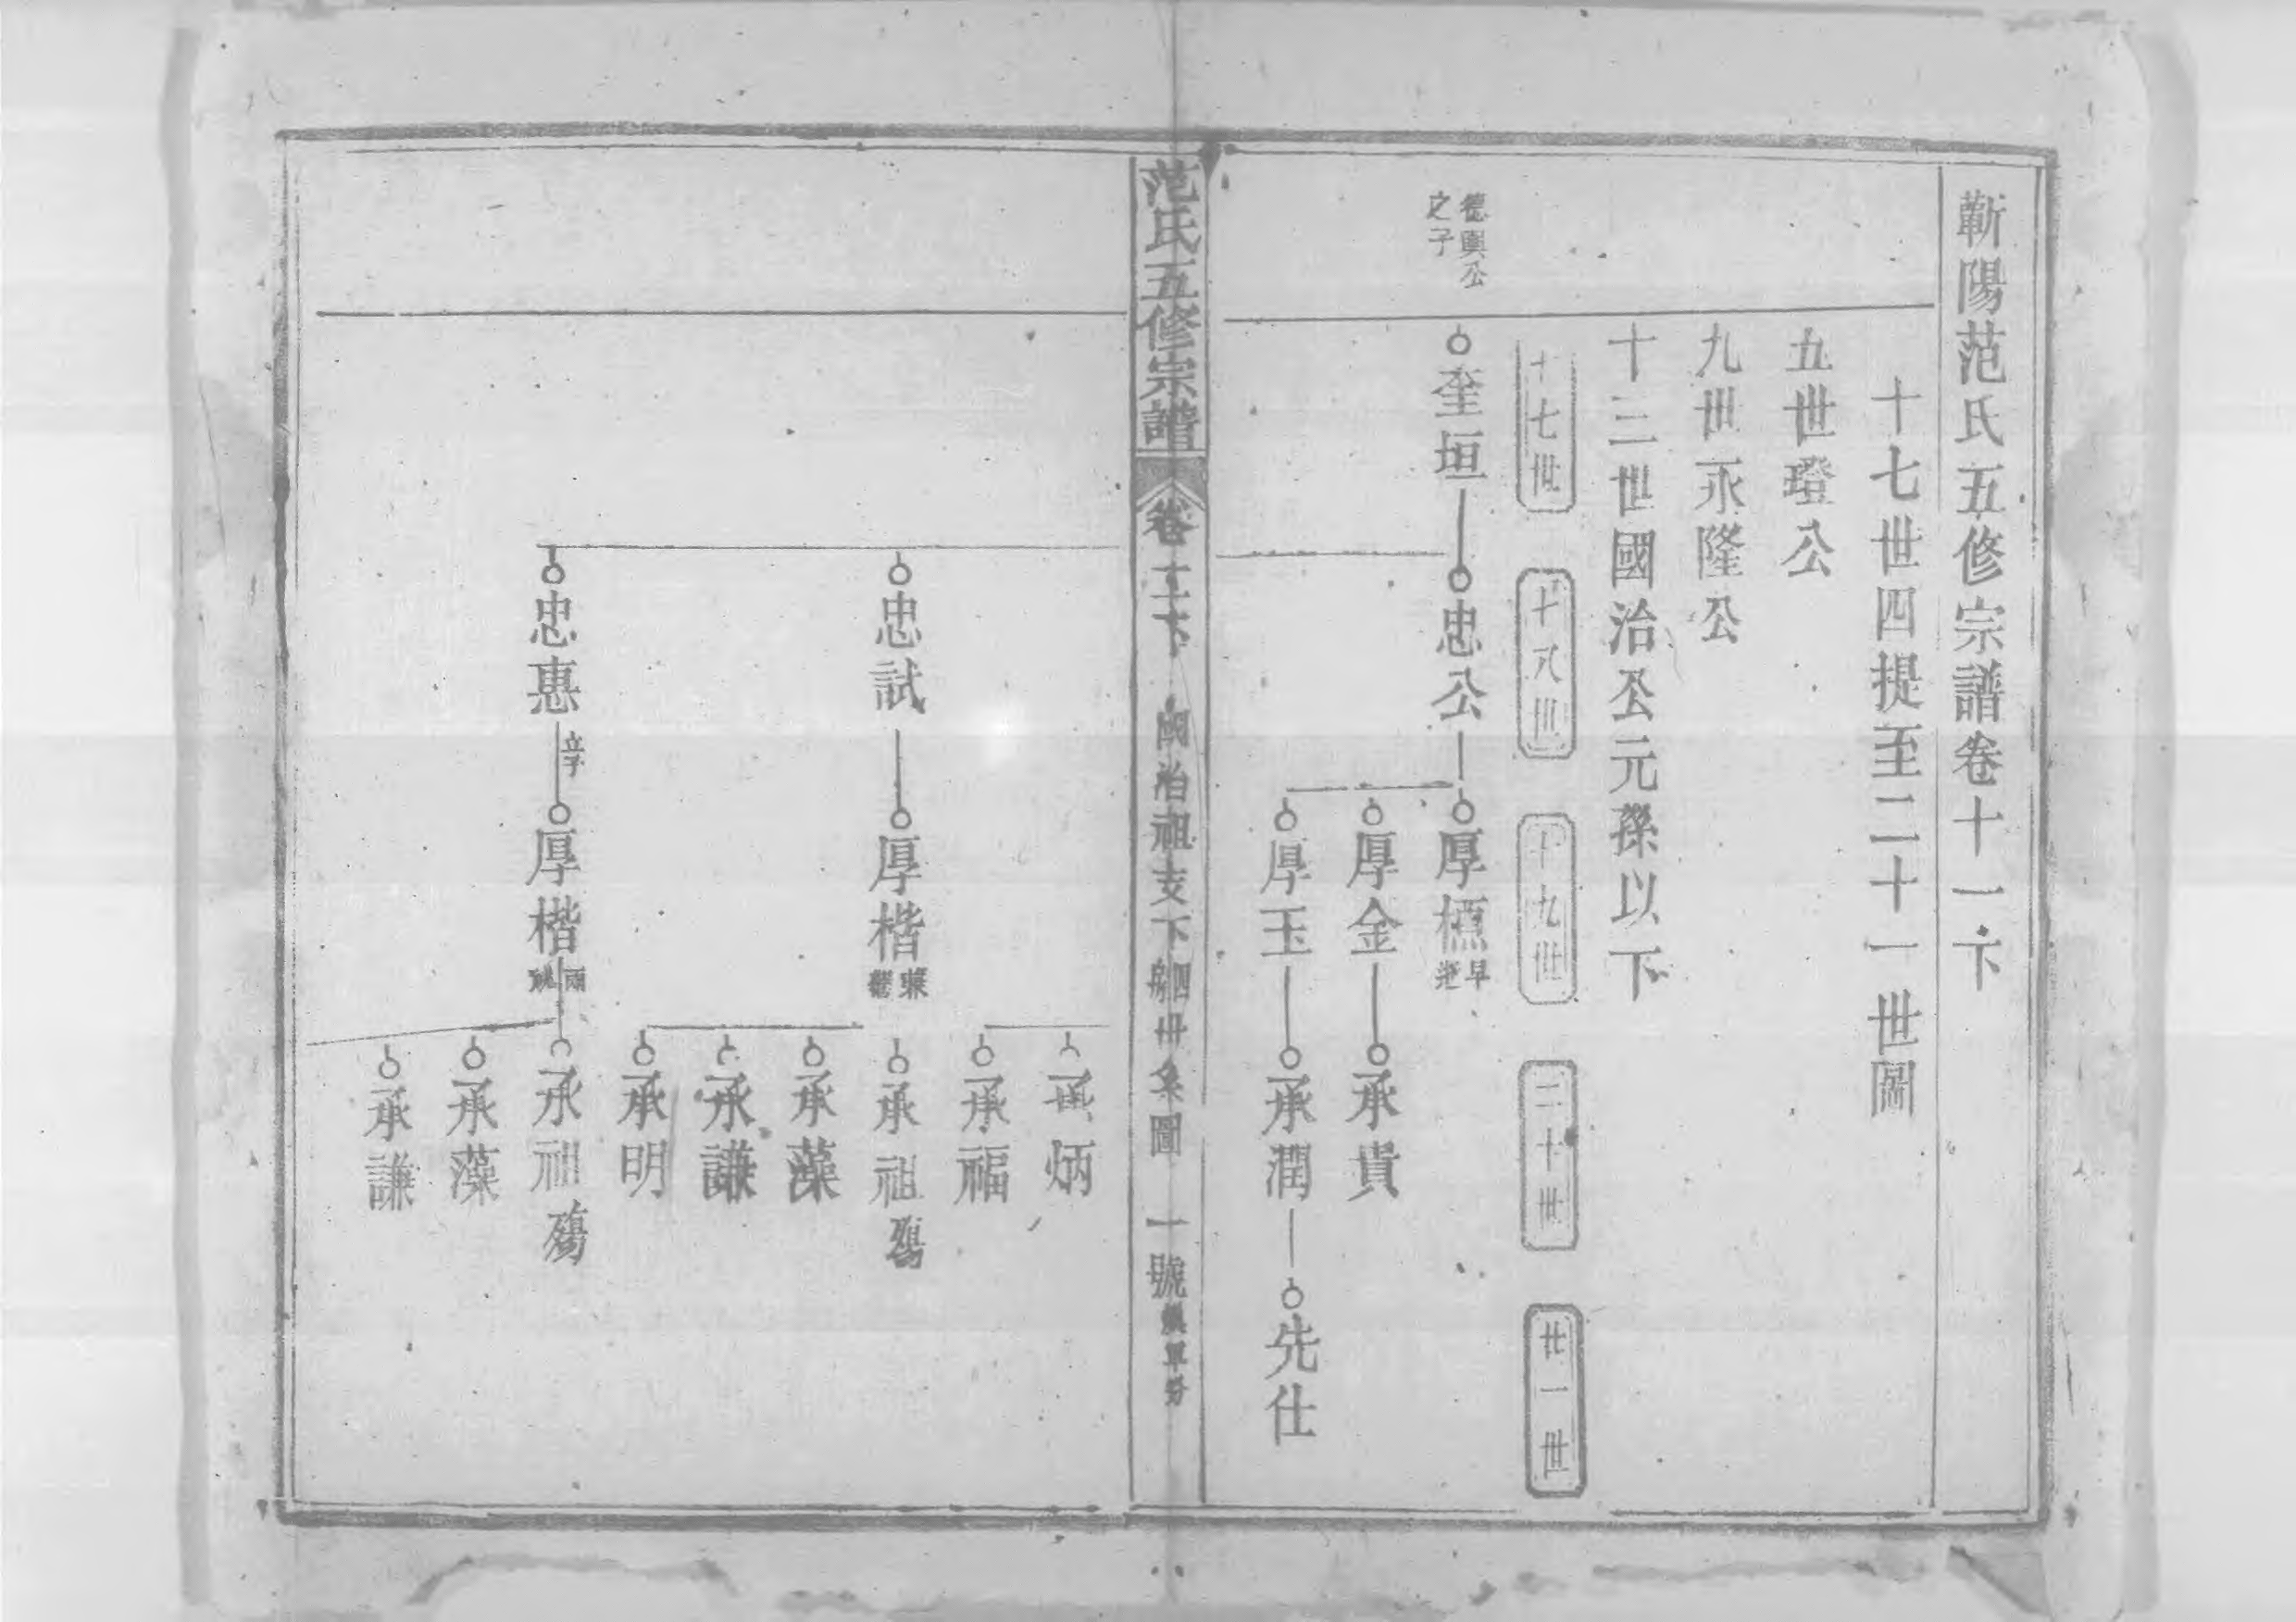 蘄陽范氏五修宗譜卷十一下
十七世四提至二十一世圖
五世璒公
九世永隆公
十三世國治公元孫以下
十七世
十八世
十九世
二十世
廿一世
德輿公
之子
奎垣
忠公
厚橞
早逝
厚金
承貴
厚玉
承潤
先仕
范氏五修宗譜
卷十一下
國治祖支下
四房
世系圖
一號
承炳
承福
忠試
厚楷
兼祧
承祖
殤
承藻
承謙
承明
忠惠
厚楷
兩祧
承祖
殤
承藻
承謙